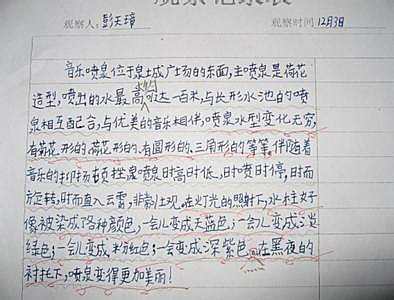 观察记录表
观察人：彭天璋 观察时间 12月3日
音乐喷泉位于泉城广场的东面，主喷泉是荷花
造型，喷出的水最高约可达一百米，与长形水池的喷
泉相互配合，与优美的音乐相伴，喷泉水型变化无穷，
有菊花形的、荷花形的、有圆形的、三角形的等等。伴随着
音乐的抑扬顿挫喷泉时高时低，时喷时停，时而
旋转，时而直入云霄，非常壮观。在灯光的照射下，水柱好
像被染成了各种颜色，一会儿变成天蓝色；一会儿变成淡
绿色；一会儿变成粉红色；一会变成深紫色。在黑夜的
衬托下，喷泉变得更加美丽！